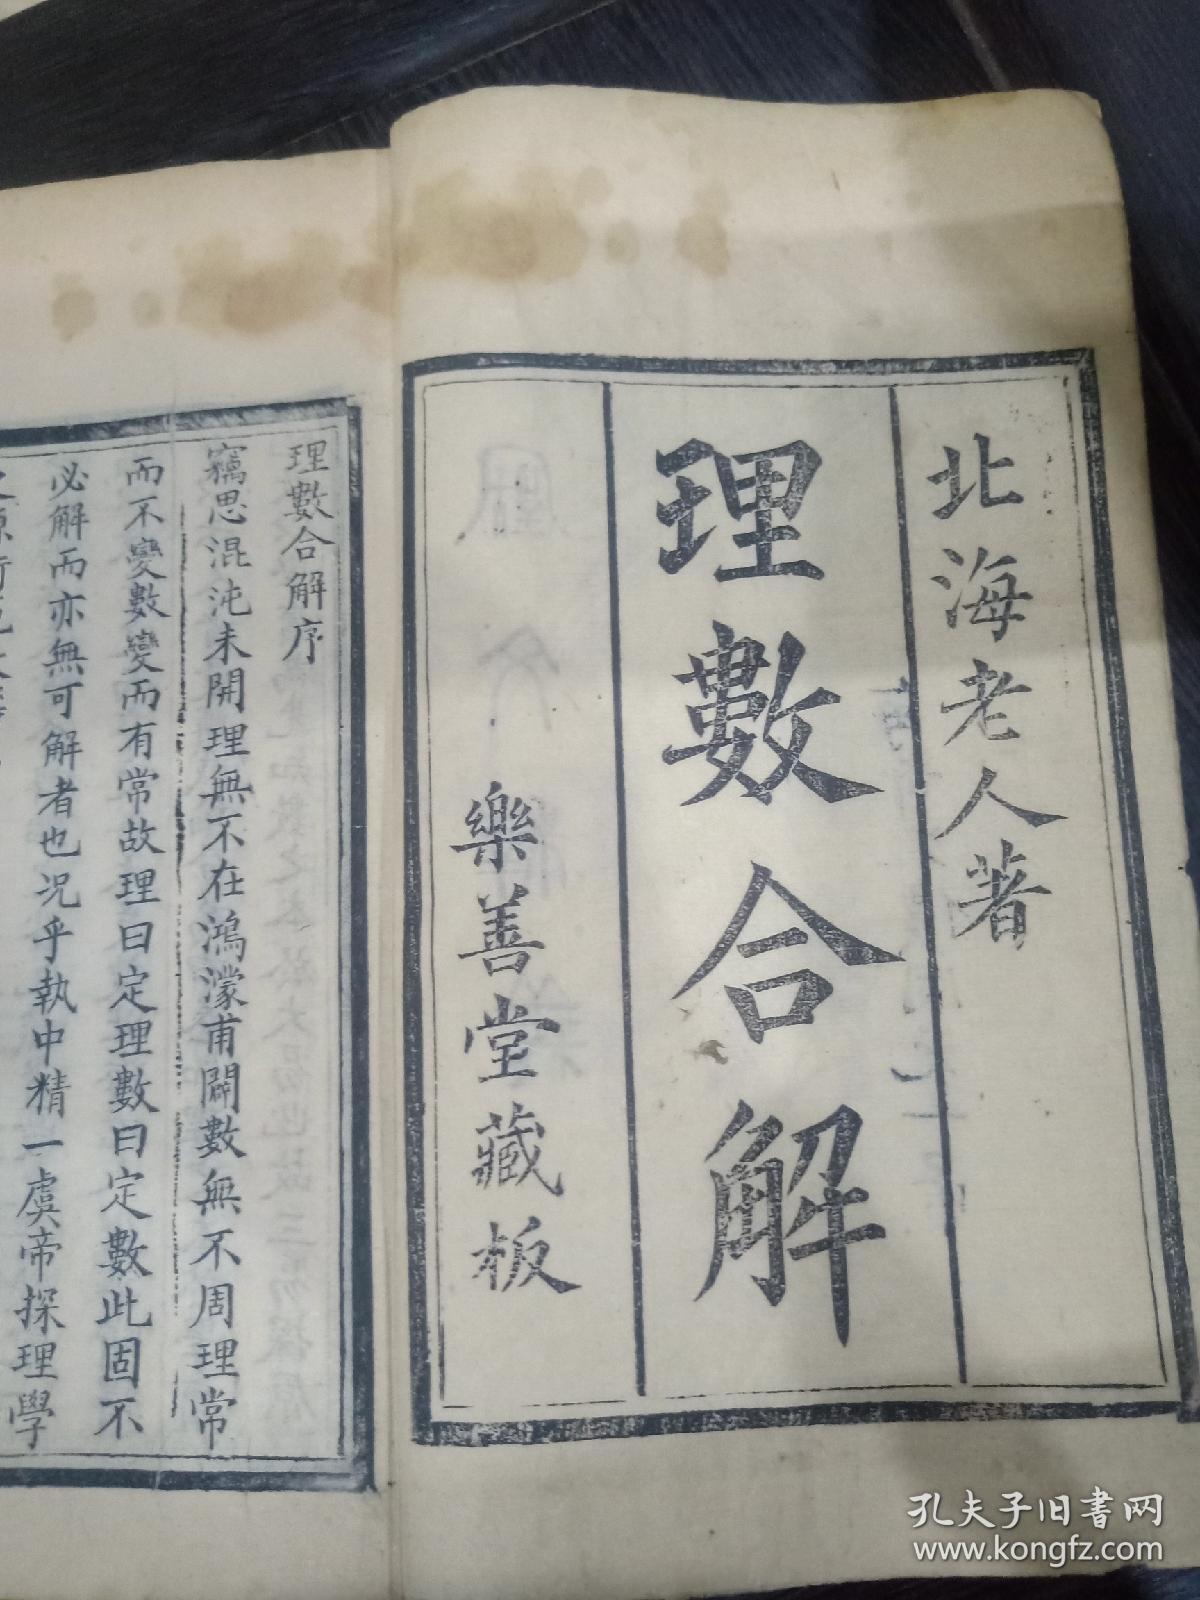 北海老人著
理數合解
樂善堂藏板
理數合解序
竊思混沌未開理無不在鴻濛甫闢數無不周理常
而不變數變而有常故理曰定理數曰定數此固不
必解而亦無可解者也况乎執中精一虞帝探理學
孔夫子旧书网
www.kongfz.com